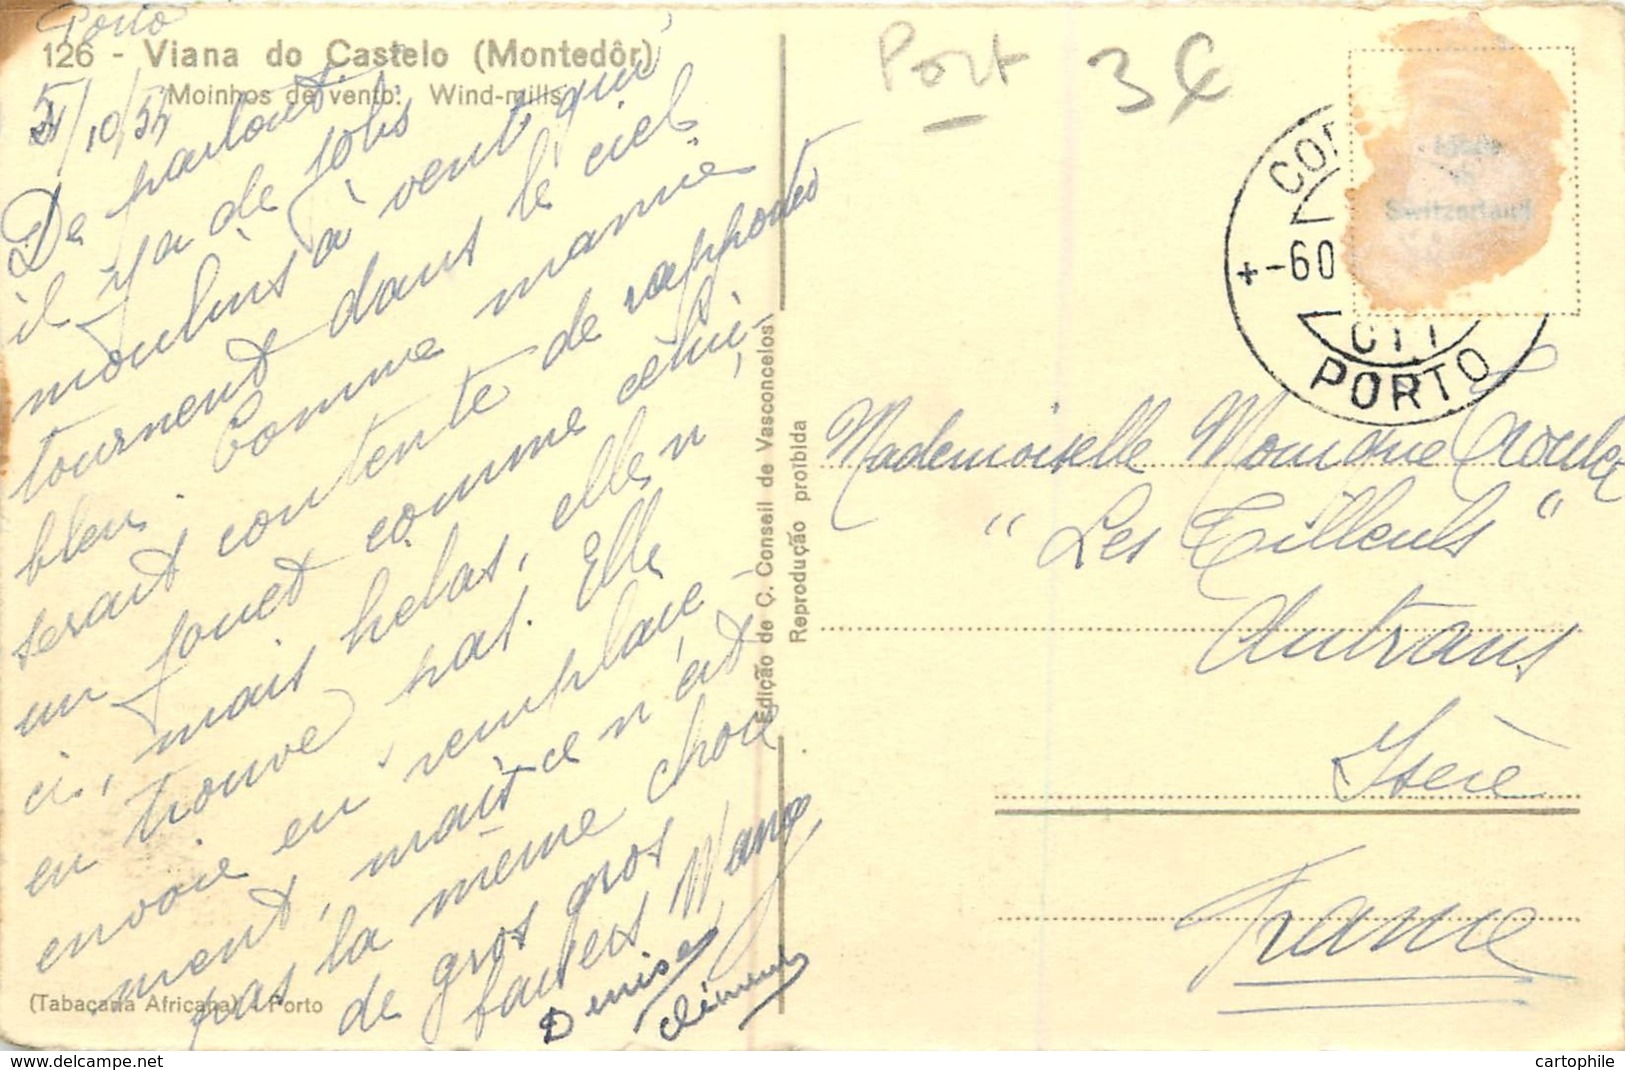 Porto
126 - Viana do Castelo (Montedôr)
Moinhos de vento: Wind-mills
5/10/54
De partout
il y a de jolis
moulins à vent qui
tournent dans le ciel
bleu. Comme mamie
serait contente de rapporter
un jouet comme celui-
ci, mais helas, elle n'
en trouve pas. Elle
envoie en remplace-
ment, mais ce n'est
pas la même chose
de gros gros
baisers
Denise
(Tabaçaria Africana) - Porto
Edição de C. Conseil de Vasconcelos
Reprodução proïbida
Port 3€
CTT
+-60
PORTO
Made
in
Switzerland
Mademoiselle Monique
"Les Tilleuls"
Autrans
Isère
France
cartophile.com